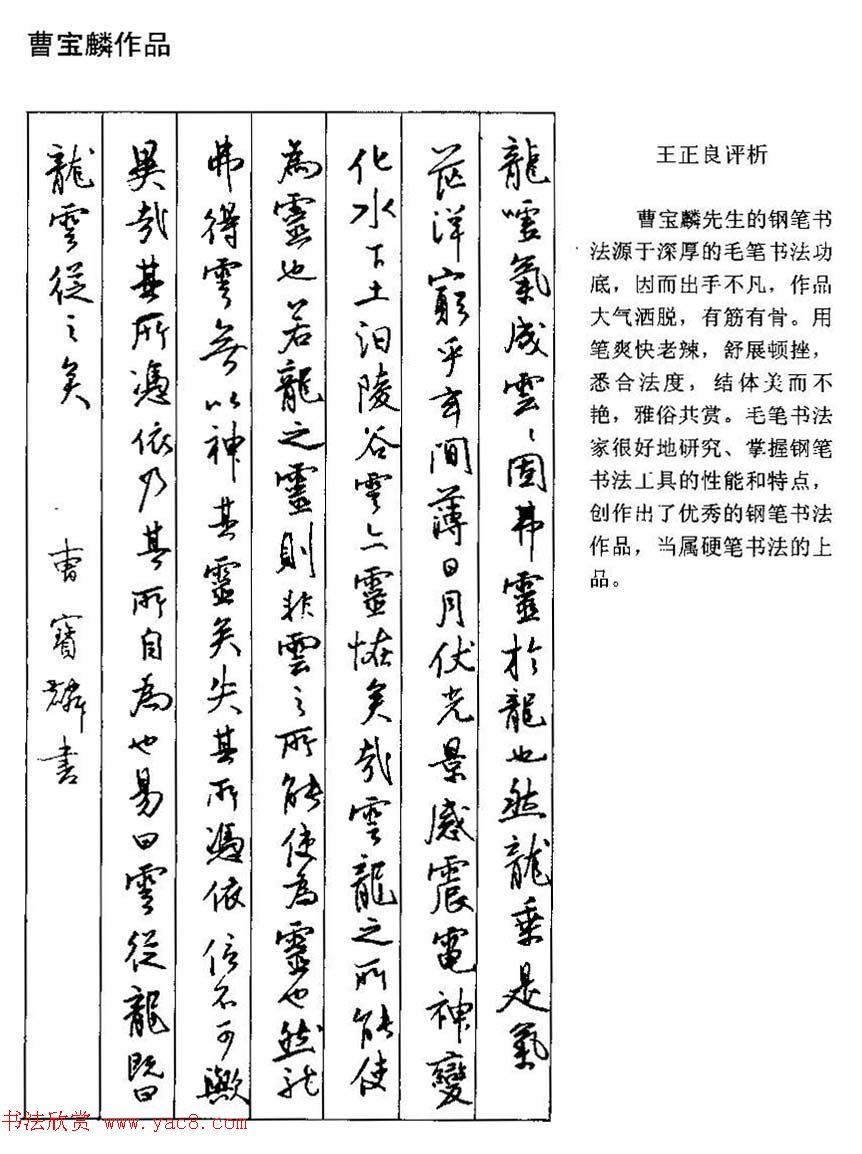 曹宝麟作品
龍嘘氣成雲〻固弗靈於龍也然龍乗是氣
茫洋窮乎玄間薄日月伏光景感震電神變
化水下土汩陵谷雲亦靈恠矣哉雲龍之所能使
為靈也若龍之靈則非雲之所能使為靈也然龍
弗得雲無以神其靈矣失其所憑依信不可歟
異哉其所憑依乃其所自為也易曰雲從龍既曰
龍雲從之矣
曹寶麟書
王正良评析
曹宝麟先生的钢笔书
法源于深厚的毛笔书法功
底，因而出手不凡，作品
大气洒脱，有筋有骨。用
笔爽快老辣，舒展顿挫，
悉合法度，结体美而不
艳，雅俗共赏。毛笔书法
家很好地研究、掌握钢笔
书法工具的性能和特点，
创作出了优秀的钢笔书法
作品，当属硬笔书法的上
品。
书法欣赏 www.yac8.com